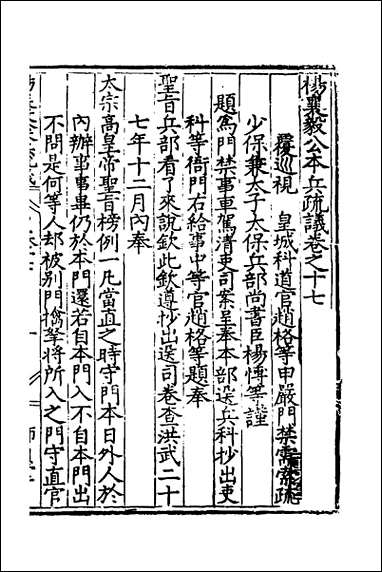 楊襄毅公本兵疏議卷之十七
覆巡視　皇城科道官趙格等申嚴門禁需索疏
少保兼太子太保兵部尚書臣楊愽等謹
題爲門禁事車駕清吏司案呈奉本部送兵科抄出吏
科等衙門右給事中等官趙格等題奉
聖旨兵部看了來說欽此欽遵抄出送司卷查洪武二十
七年十二月內奉
太宗高皇帝聖旨榜例一凡當直之時守門本日外人於
內辦事事畢仍於本門還若自本門入不自本門出
不問是何等人却被別門擒拏將所入之門守直官